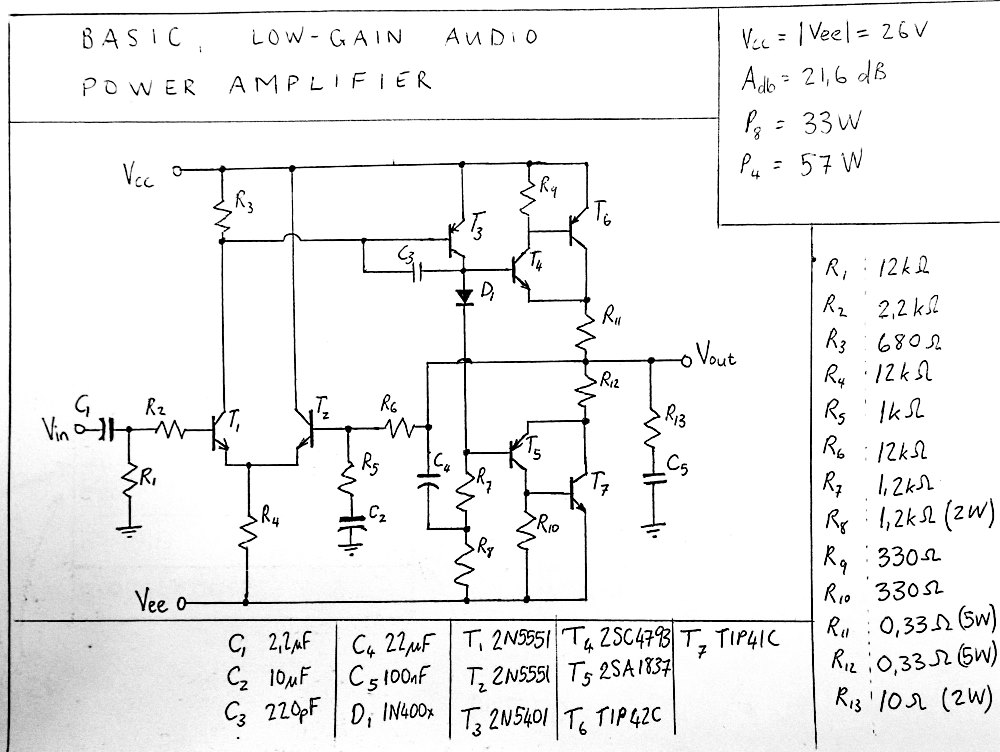 BASIC, LOW-GAIN AUDIO
POWER AMPLIFIER
Vcc = |Vee| = 26V
Adb = 21,6 dB
P8 = 33W
P4 = 57 W
Vcc
R3
R9
T6
T3
C3
T4
D1
R11
Vout
R12
C1
R2
T1
T2
R6
Vin
R13
T5
R1
R5
C4
R7
C5
T7
C2
R4
R10
R8
Vee
R1 : 12kΩ
R2 2,2kΩ
R3 680Ω
R4 12kΩ
R5 1kΩ
R6 12kΩ
R7 1,2kΩ
R8 1,2kΩ (2W)
R9 330Ω
R10 330Ω
R11 0,33Ω (5W)
R12 0,33Ω (5W)
R13 10Ω (2W)
C1 2,2µF C4 22µF T1 2N5551 T4 2SC4793 T7 TIP41C
C2 10µF C5 100nF T2 2N5551 T5 2SA1837
C3 220pF D1 1N400x T3 2N5401 T6 TIP42C